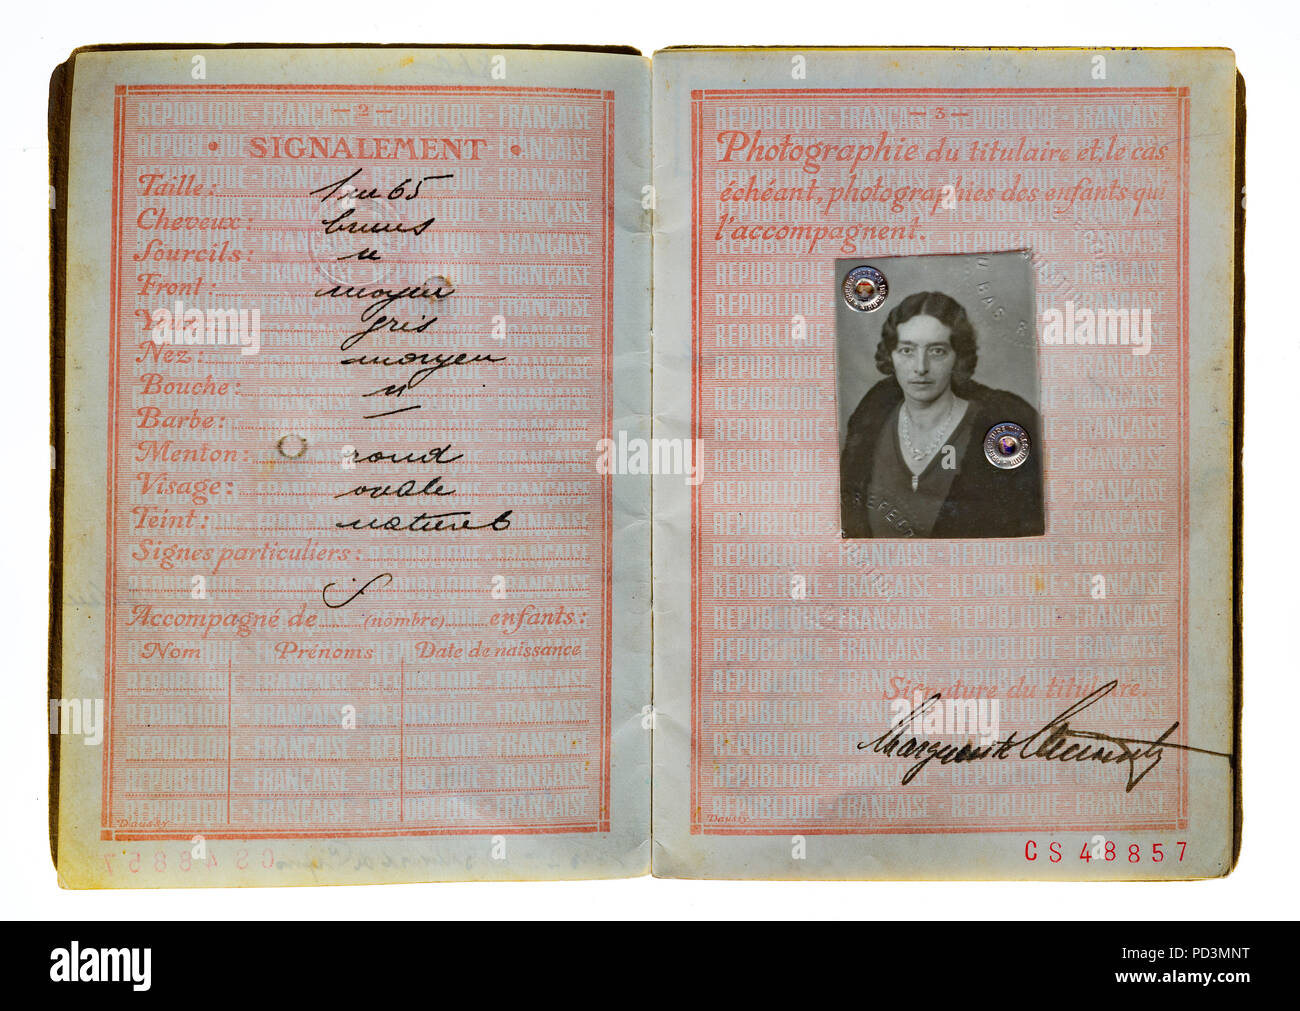 — 2 —
• SIGNALEMENT •
Taille : 1m65
Cheveux : bruns
Sourcils : "
Front : moyen
Yeux : gris
Nez : moyen
Bouche : "
Barbe : —
Menton : rond
Visage : ovale
Teint : naturel
Signes particuliers :
Accompagné de (nombre) enfants :
Nom Prénoms Date de naissance
Daussy
— 3 —
Photographie du titulaire et, le cas
échéant, photographies des enfants qui
l'accompagnent.
Signature du titulaire.
Marguerite
Daussy
CS48857
RÉPUBLIQUE - FRANÇAISE
alamy
alamy stock photo
PD3MNT
www.alamy.com